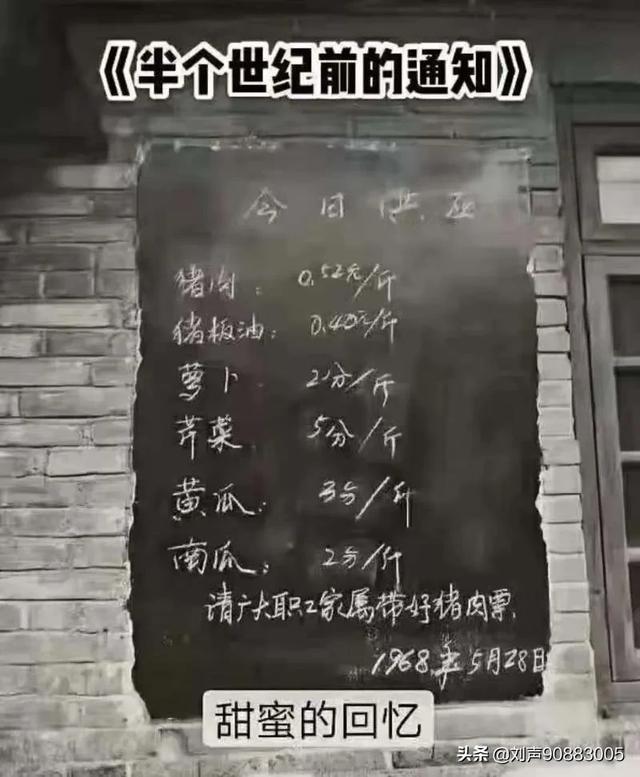 《半个世纪前的通知》
今日供应
猪肉: 0.52元/斤
猪板油: 0.40元/斤
萝卜 2分/斤
芹菜 5分/斤
黄瓜: 3分/斤
南瓜: 2分/斤
请广大职工家属带好猪肉票
1968年5月28日
甜蜜的回忆
头条 @刘声90883005